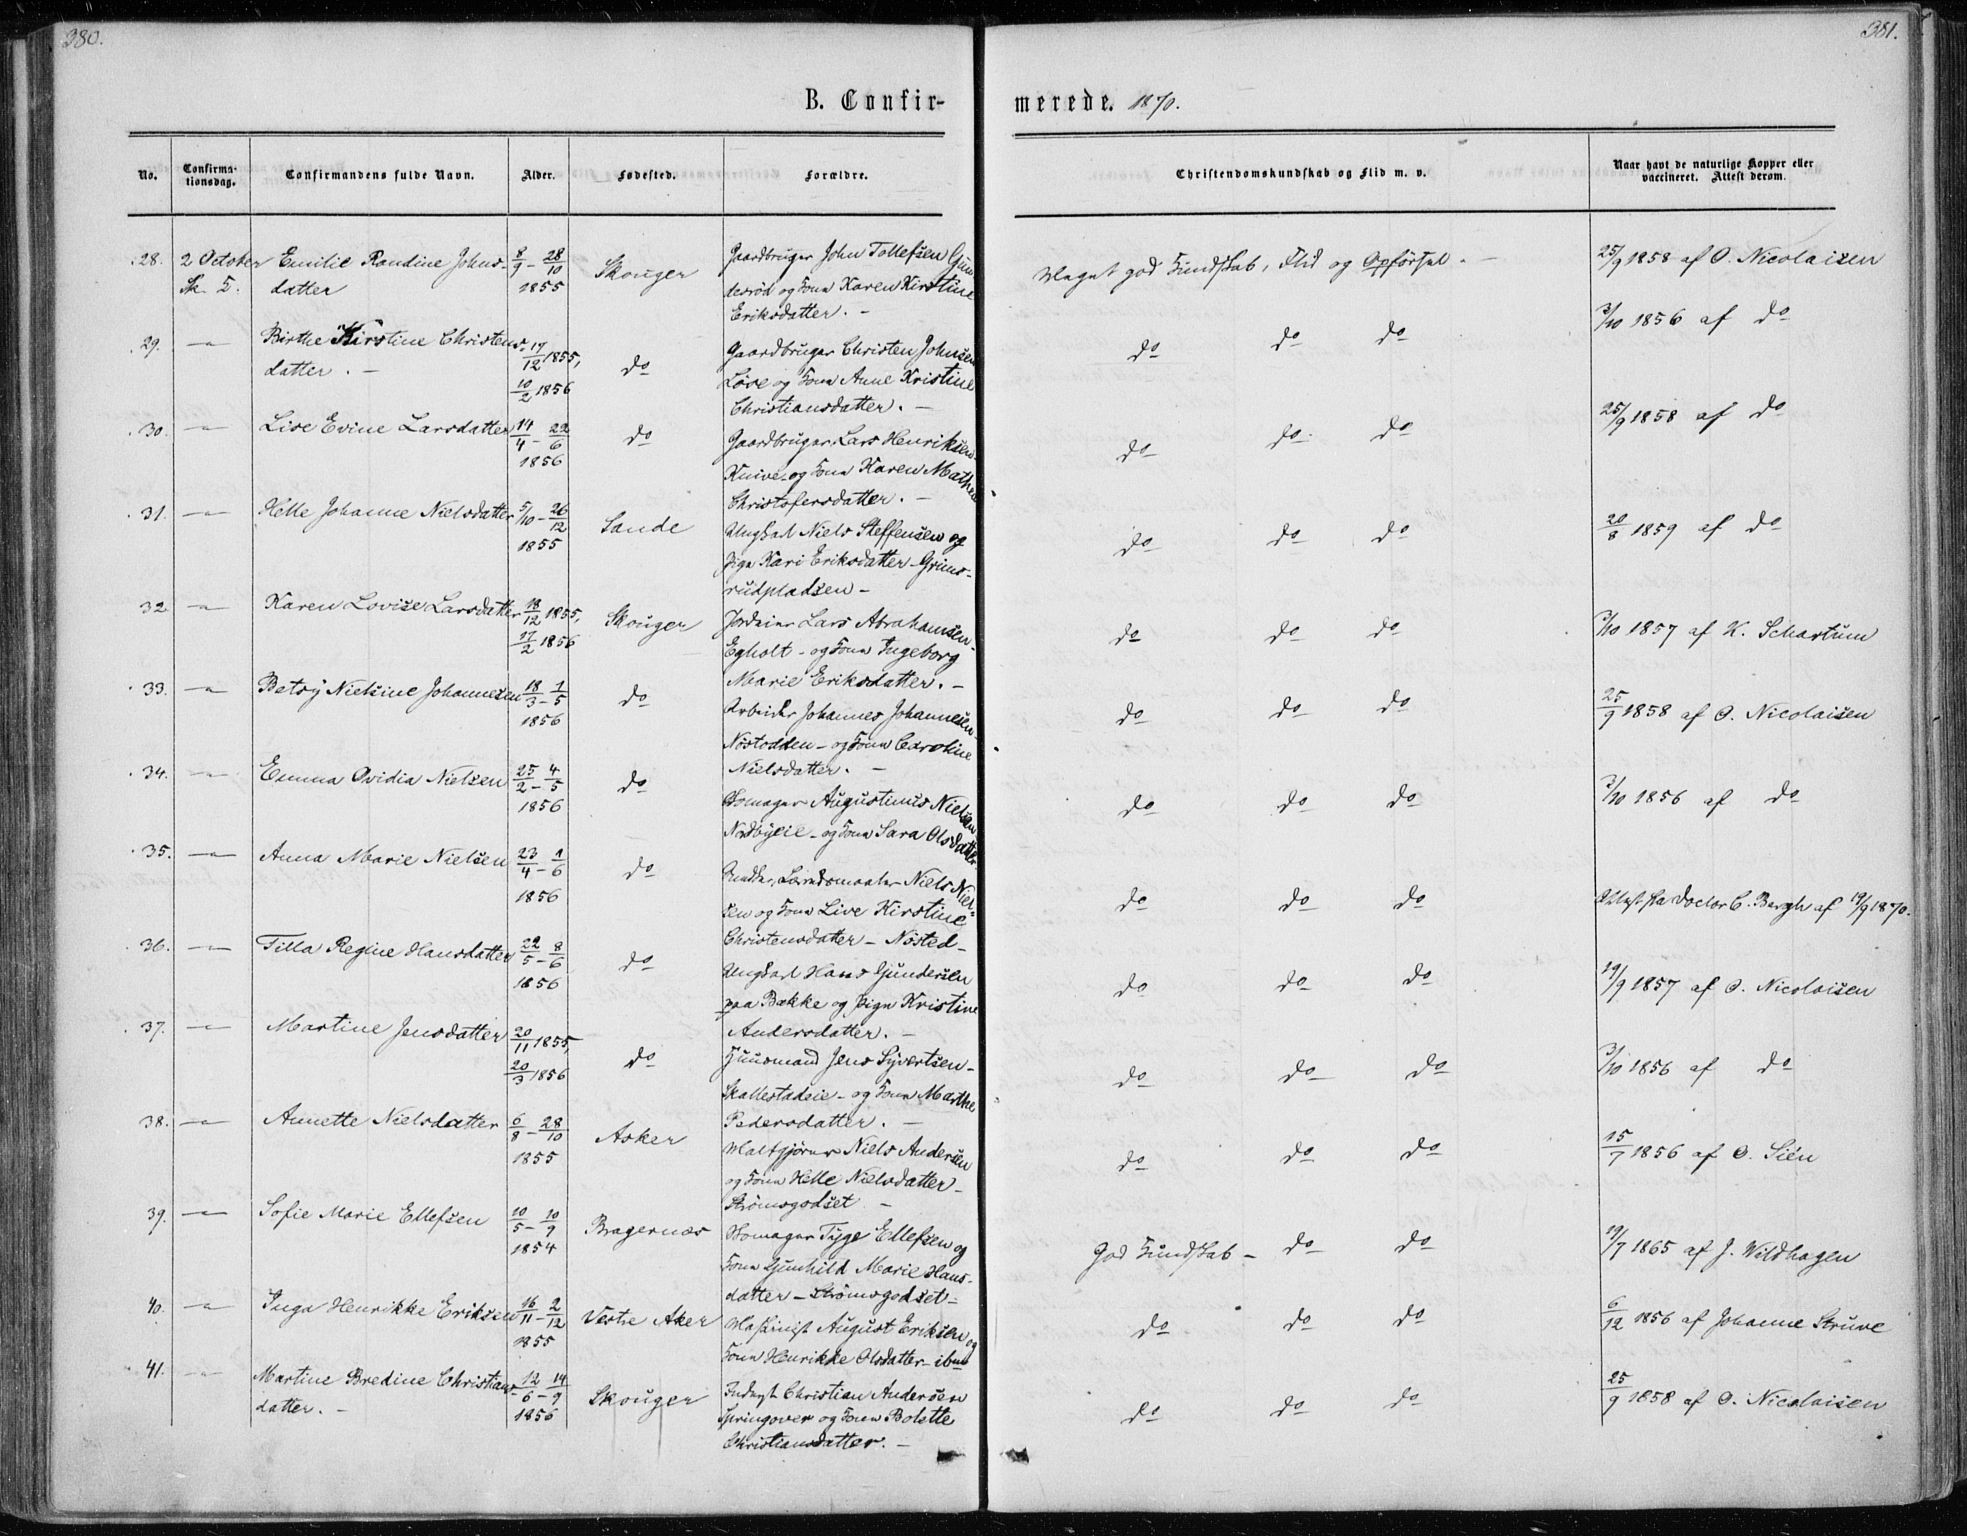 380.
381.
B. Confir-
merede. 1870.
No.
Confirma-
tionsdag.
Confirmandens fulde Navn.
Alder.
Fødested.
Forældre.
Christendomskundskab og Flid m. v.
Naar havt de naturlige Kopper eller
vaccineret. Attest derom.
28. 2 October Emilie Randine Johns- 8/9 – 28/10 Skouger Gaardbruger John Tollefsen Gun Meget god Kundskab, Flid og Opförsel. – 25/9 1858 af O. Nicolaisen
datter 1855 derød og Kone Karen Kirstine
Eriksdatter. –
29. –"– Birthe Kirstine Christens- 17/12 1855, do Gaardbruger Christen Johnsen do do do 3/10 1856 af do
datter. – 10/2 1856 Løve og Kone Anne Kristine
Christiansdatter. –
30. –"– Live Evine Larsdatter 14/4 – 22/6 do Gaardbruger Lars Henriksen do do do 25/9 1858 af do
1856 Knive og Kone Karen Mathea
Christofersdatter. –
31. –"– Helle Johanne Nielsdatter 5/10 – 26/12 Sande Ungkarl Niels Steffensen og do do do 20/8 1859 af do
1855 Pige Kari Eriksdatter – Grims-
rudpladsen –
32. –"– Karen Lovise Larsdatter 18/12 1855, Skouger Lars Abrahamsen do do do 3/10 1857 af K. Schartum
17/2 1856 Egholt – og Kone Ingeborg
Marie Eriksdatter. –
33. –"– Betsy Nielsine Johannesen 18/3 – 1/5 do Arbeider Johannes Johannesen do do do 25/9 1858 af O. Nicolaisen
1856 Nøstodden – og Kone Caroline
Nielsdatter. –
34. –"– Emma Ovidia Nielsen 25/2 – 4/5 do Skomager Augustinus Nielsen do do do 3/10 1856 af do
1856 Nordbyeie – og Kone Sara Olsdatter
35. –"– Anna Marie Nielsen 23/4 – 1/6 do Niels Niel- do do do Attest fra Doctor C. Bergh af 19/9 1870.
1856 sen og Kone Live Kirstine
Christensdatter – Nøsted –
36. –"– Tilla Regine Hansdatter 22/5 – 8/6 do Ungkarl Hans Gundersen do do do 19/9 1857 af O. Nicolaisen
1856 paa Bække og Pige Kristine
Andersdatter. –
37. –"– Martine Jensdatter 20/11 1855, do Huusmand Jens Syvertsen do do do 3/10 1856 af do
20/3 1856 Skallestadeie – og Kone Marthe
Pedersdatter. –
38. –"– Annette Nielsdatter 6/8 – 28/10 Asker Maltgjører Niels Andersen do do do 15/7 1856 af O. Sién
1855 og Kone Helle Nielsdatter –
Strømsgodset –
39. –"– Sofie Marie Ellefsen 10/5 – 10/9 Bragernæs Skomager Tyge Ellefsen og God Kundskab – do do 19/7 1865 af J. Wildhagen
1854 Kone Gunhild Marie Hans-
datter – Strømsgodset –
40. –"– Inga Henrikke Eriksen 16/11 – 2/12 Vestre Aker Maskinist August Eriksen og do do do 6/12 1856 af Johanne Struve
1855 Kone Henrikke Olsdatter – ibm
41. –"– Martine Bredine Christians- 12/6 – 14/9 Skouger Inderst Christian Andersen do do do 25/9 1858 af O. Nicolaisen
datter. – 1856 Springover og Kone Bolette
Christiansdatter. –